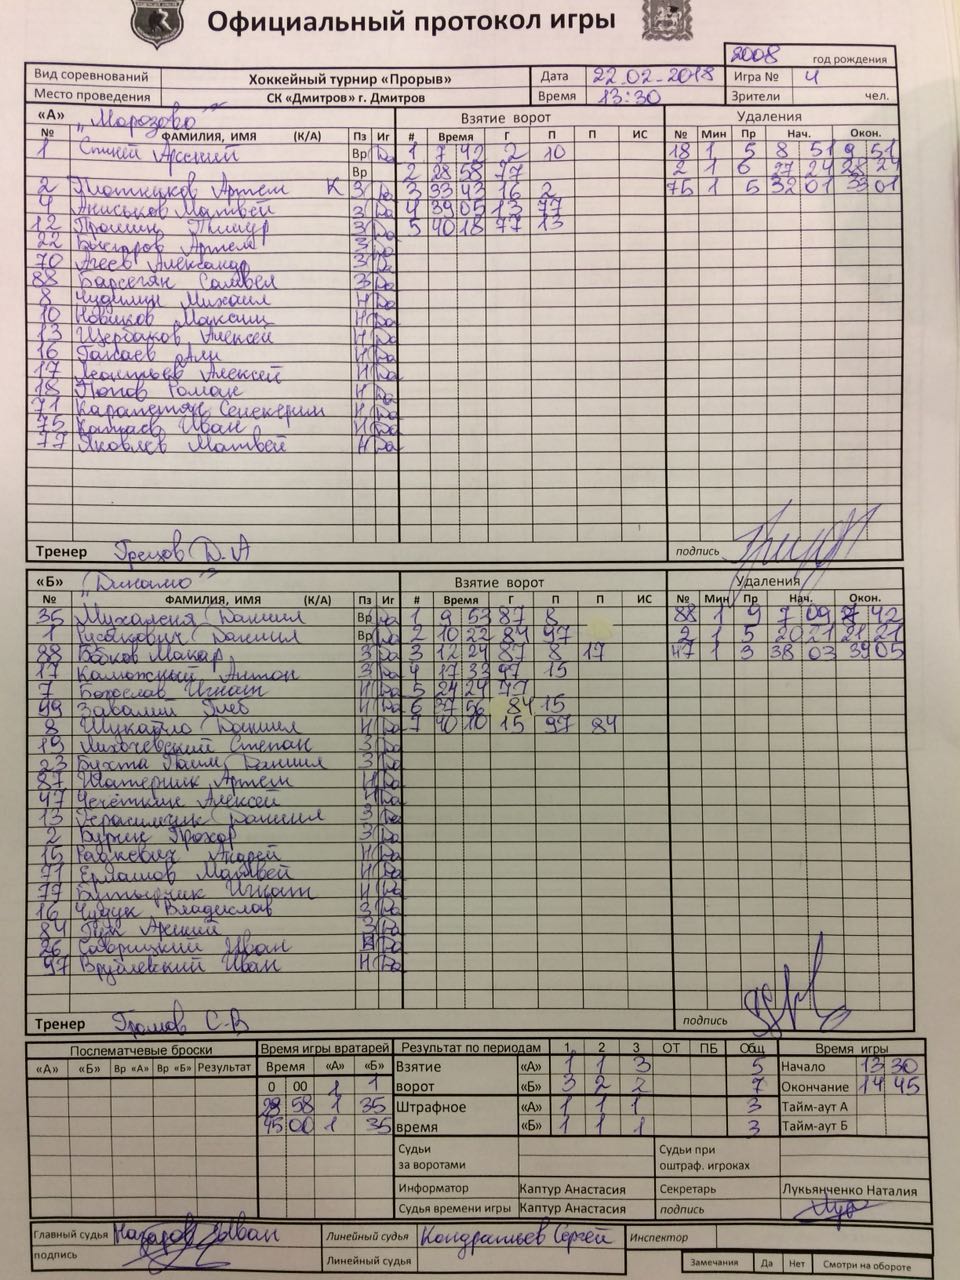 Официальный протокол игры
2008 год рождения
Вид соревнований Хоккейный турнир «Прорыв» Дата 22.02.2018 Игра № 4
Место проведения СК «Дмитров» г. Дмитров Время 13:30 Зрители чел.
«А» „Морозово" Взятие ворот Удаления
№ ФАМИЛИЯ, ИМЯ (К/А) Пз Иг # Время Г П П ИС № Мин Пр Нач. Окон.
1 Арсений Вр Да 1 7 42 2 10 18 1 5 8 51 9 51
Вр 2 28 58 77 2 1 6 27 24 28 24
2 Плотников Артём К З Да 3 33 43 16 2 75 1 5 32 01 33 01
4 Аниськов Матвей З Да 4 39 05 13 77
12 Прошин Тимур З Да 5 40 18 77 13
22 Бочаров Артем З Да
70 Агеев Александр З Да
88 Барсегян Самвел З Да
8 Чудилин Михаил Н Да
10 Новиков Максим Н Да
13 Щербаков Алексей Н Да
16 Али Н Да
17 Леонтьев Алексей Н Да
18 Попов Роман Н Да
71 Карапетян Сенекерим Н Да
75 Иван Н Да
77 Яковлев Матвей Н Да
Тренер Грецов Д.А подпись
«Б» „Динамо" Взятие ворот Удаления
№ ФАМИЛИЯ, ИМЯ (К/А) Пз Иг # Время Г П П ИС № Мин Пр Нач. Окон.
35 Михаленя Даниил Вр Да 1 9 53 87 8 88 1 9 7 09 7 42
1 Русакович Даниил Вр Да 2 10 22 84 97 2 1 5 20 21 21 21
88 Бобков Макар З Да 3 12 24 87 8 17 47 1 3 38 03 39 05
17 Каможный Антон З Да 4 17 33 97 15
7 Богослав Игнат Н Да 5 24 24 77
99 Завалий Глеб Н Да 6 37 56 84 15
8 Шукайло Даниил Н Да 7 40 10 15 97 84
19 Лихачевский Степан З Да
23 Бухта Даниил З Да
87 Шатерник Артем Н Да
47 Чечёткин Алексей Н Да
13 Герасимчик Даниил З Да
2 Бурик Прохор З Да
15 Радкевич Андрей Н Да
71 Ермашов Матвей Н Да
77 Бутырчик Игнат Н Да
16 Чудук Владислав З Да
84 Гук Арсений З Да
26 Саврицкий Иван Н Да
97 Врублевский Иван Н Да
Тренер Громов С.В подпись
Послематчевые броски Время игры вратарей Результат по периодам 1 2 3 ОТ ПБ Общ Время игры
«А» «Б» Вр «А» Вр «Б» Результат Время «А» «Б» Взятие «А» 1 1 3 5 Начало 13 30
0 00 1 1 ворот «Б» 3 2 2 7 Окончание 14 45
28 58 1 35 Штрафное «А» 1 1 1 3 Тайм-аут А
45 00 1 35 время «Б» 1 1 1 3 Тайм-аут Б
Судьи за воротами Судьи при оштраф. игроках
Информатор Каптур Анастасия Секретарь Лукьянченко Наталия
Судья времени игры Каптур Анастасия подпись
Главный судья Назаров Иван Линейный судья Кондратьев Сергей Инспектор
подпись Линейный судья Замечания Да Нет Смотри на обороте